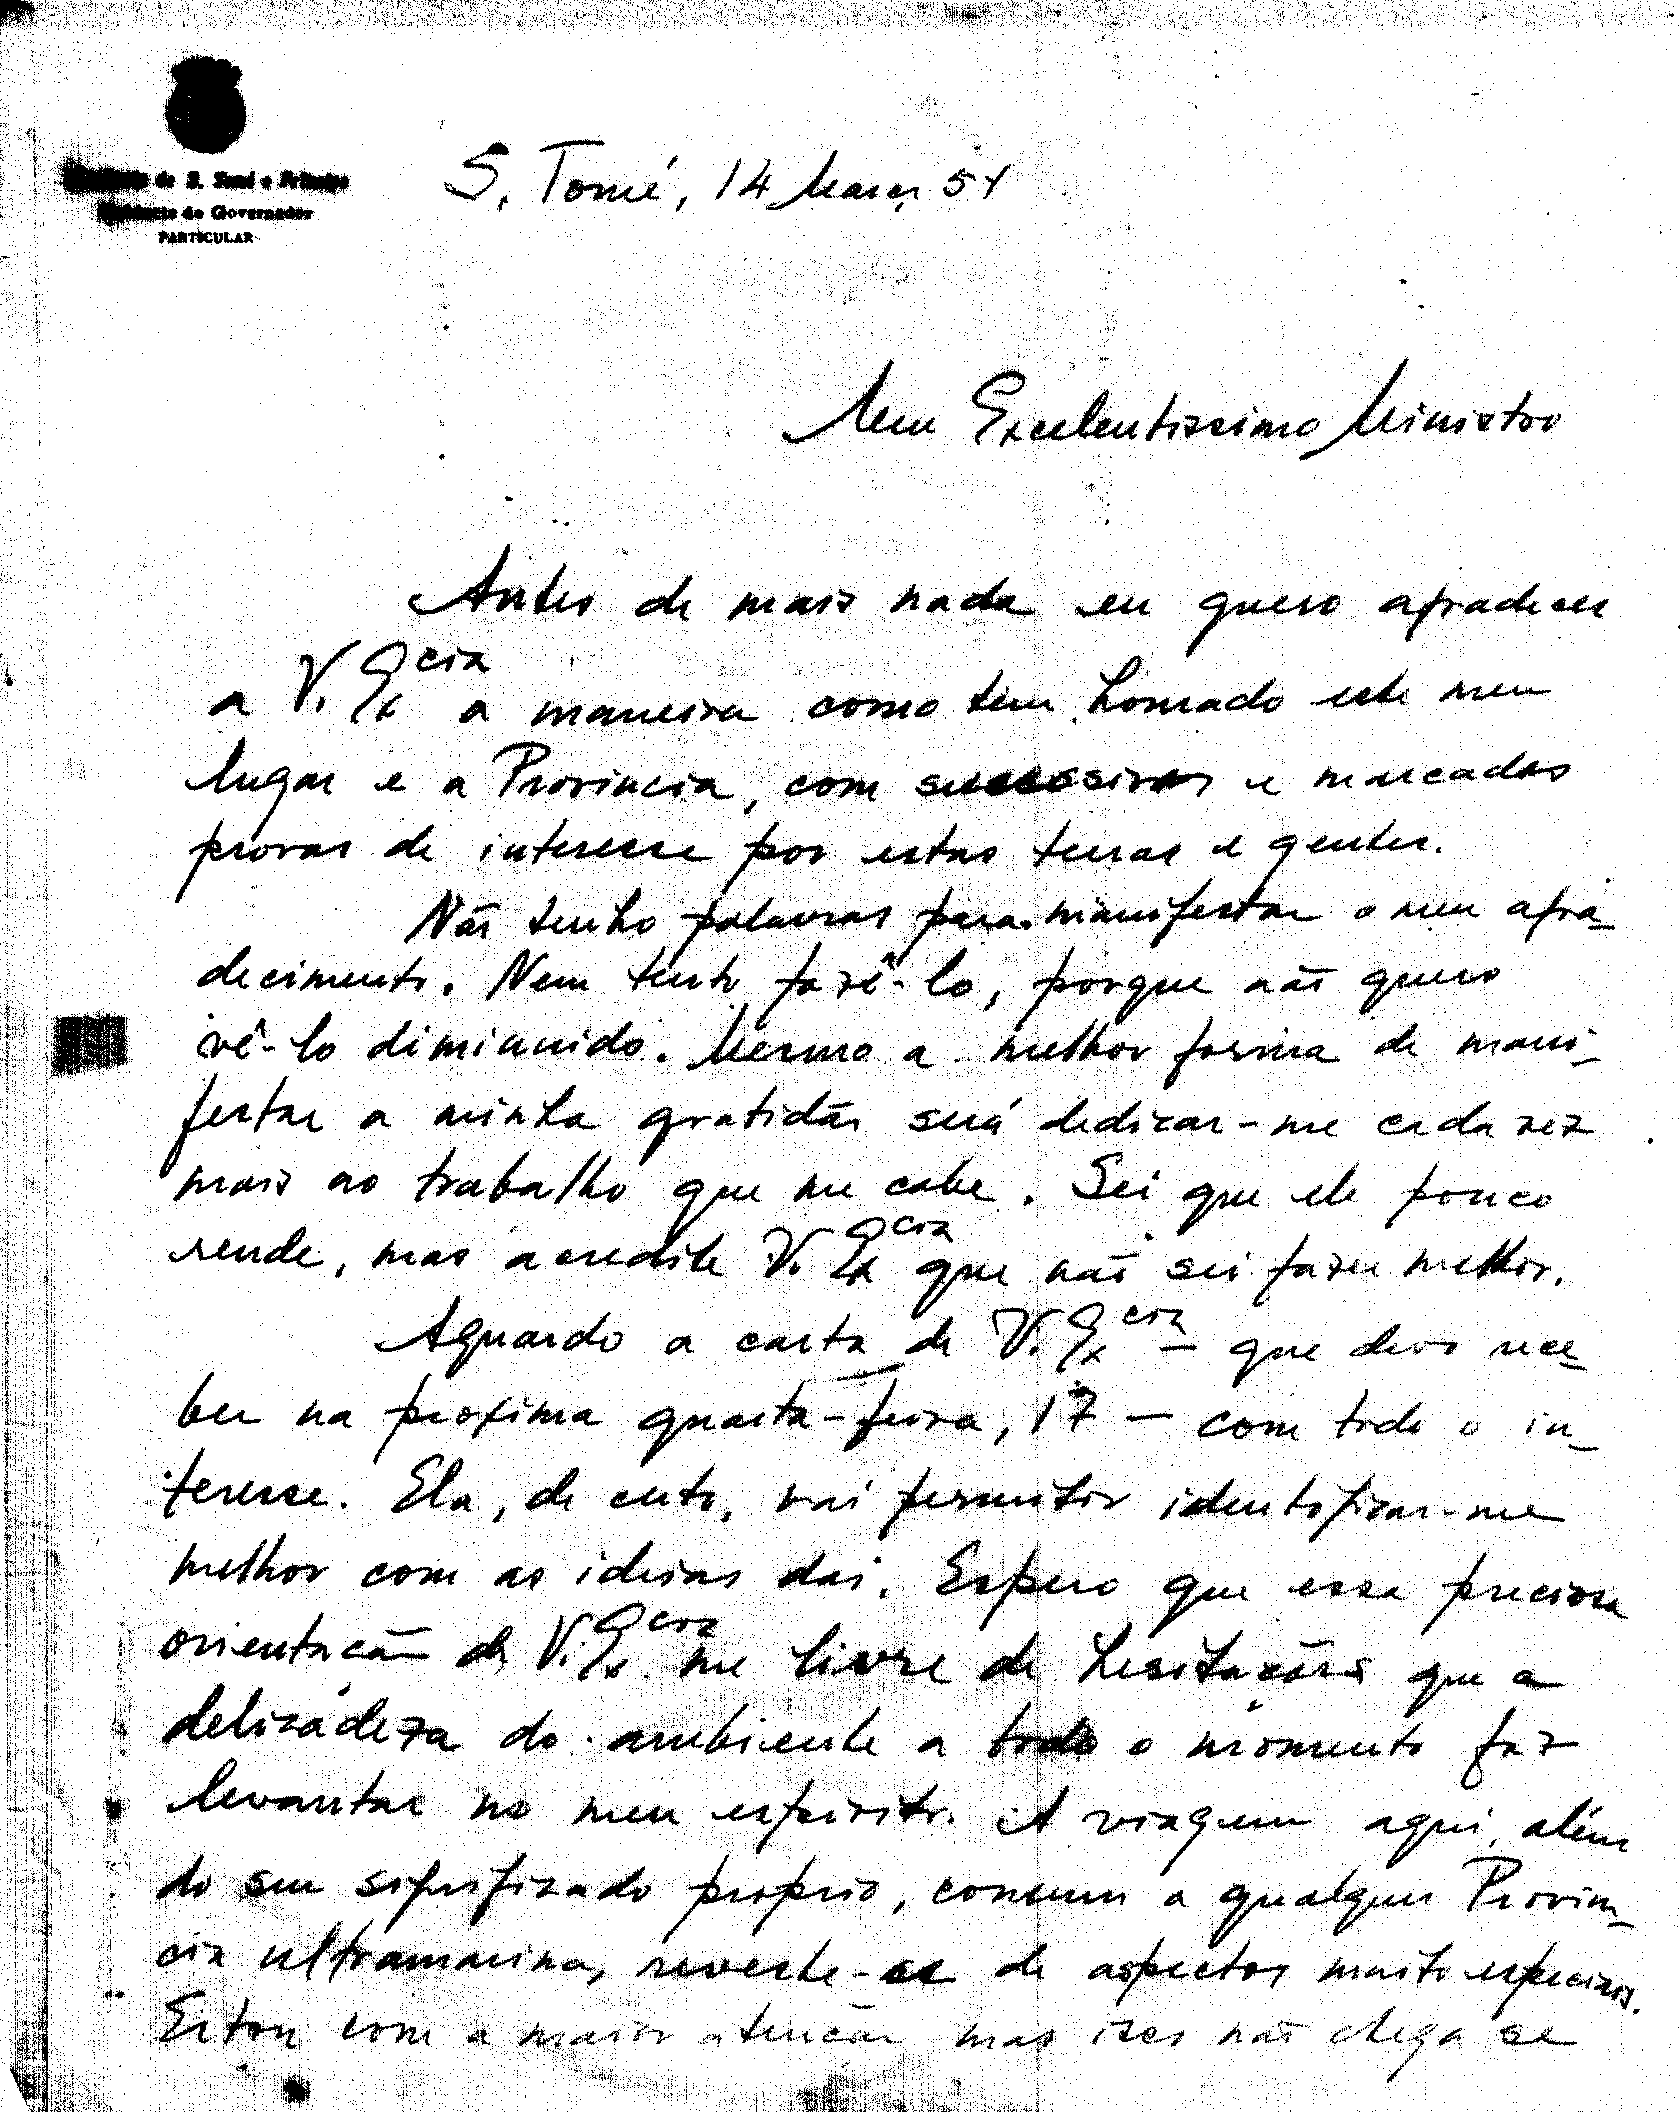 de S. Tomé e Príncipe
do Governador
PARTICULAR
S. Tomé, 14 Março 54
Meu Excelentissimo Ministro
Antes de mais nada eu quero agradecer
a V. Ex cia a maneira como tem honrado este meu
lugar e a Provincia, com sucessivas e marcadas
provas de interesse por estas terras e gentes.
Não tenho palavras para manifestar o meu agra-
decimento. Nem tento fazê-lo, porque não quero
vê-lo diminuido. Mesmo a melhor forma de mani-
festar a minha gratidão será dedicar-me cada vez
mais ao trabalho que me cabe. Sei que ele pouco
rende, mas acredite V. Ex cia que não sei fazer melhor.
Aguardo a carta de V. Ex cia – que devo rece-
ber na proxima quarta-feira, 17 – com todo o in-
teresse. Ela, de certo, vai permitir identificar-me
melhor com as ideias daí. Espero que essa preciosa
orientação de V. Ex cia me livre de hesitações que a
delicadeza do ambiente a todo o momento faz
levantar no meu espirito. A viagem aqui, além
do seu significado proprio, comum a qualquer Provin-
cia ultramarina, reveste-se de aspectos muito especiais.
Estou com a maior atenção mas isso não chega se